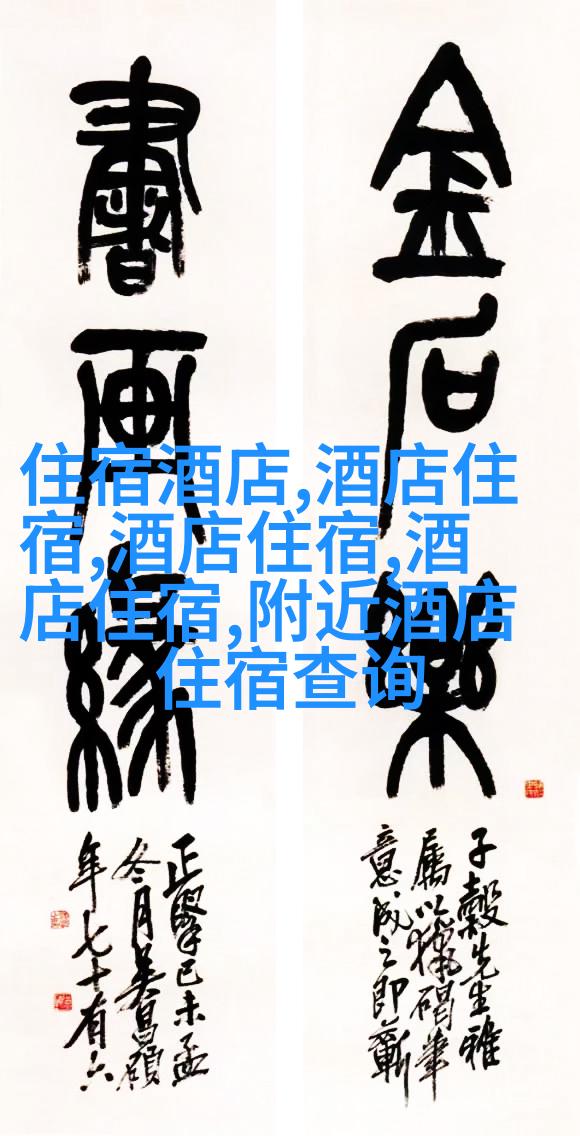 金石樂
書画緣
子穀先生雅
屬以獵碣筆
意成之即蘄
正擘己未孟
冬月吴昌碩
年七十有六
住宿酒店,酒店住
宿,酒店住宿,酒
店住宿,附近酒店
住宿查询